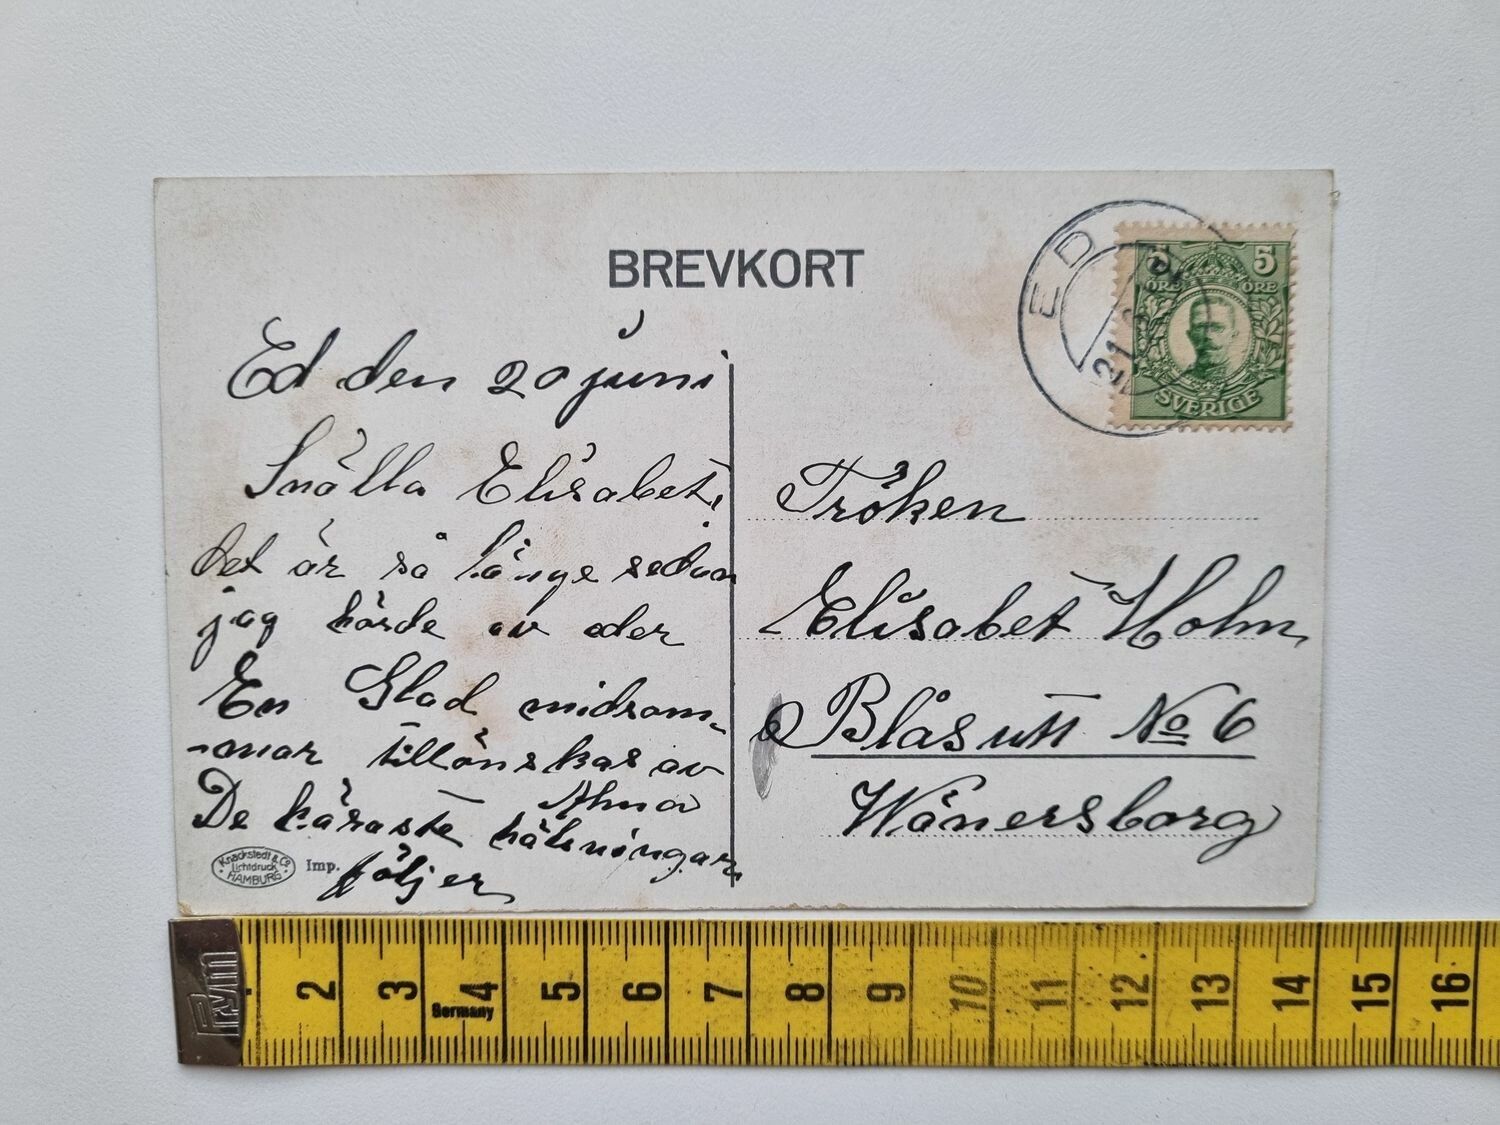 BREVKORT
Ed den 20 juni
Snälla Elisabet,
det är så länge sedan
jag hörde av eder
En Glad midsom-
-mar tillönskas av
Alma
De käraste hälsningar
följer
Knackstedt & Co.
Lichtdruck
HAMBURG
Imp.
ED
21
5 5
ÖRE ÖRE
SVERIGE
Fröken
Elisabet Holm
Blåsutt No 6
Wänersborg
Prym
2 3 4 5 6 7 8 9 10 11 12 13 14 15 16
Germany